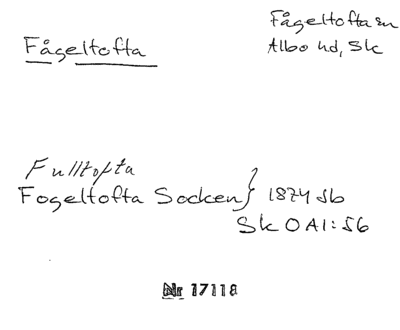 Fågeltofta sn
Fågeltofta
Albo hd, Sk
Fulltofta
Fogeltofta Socken } 1874 jb
Sk OA1:56
Nr 17118